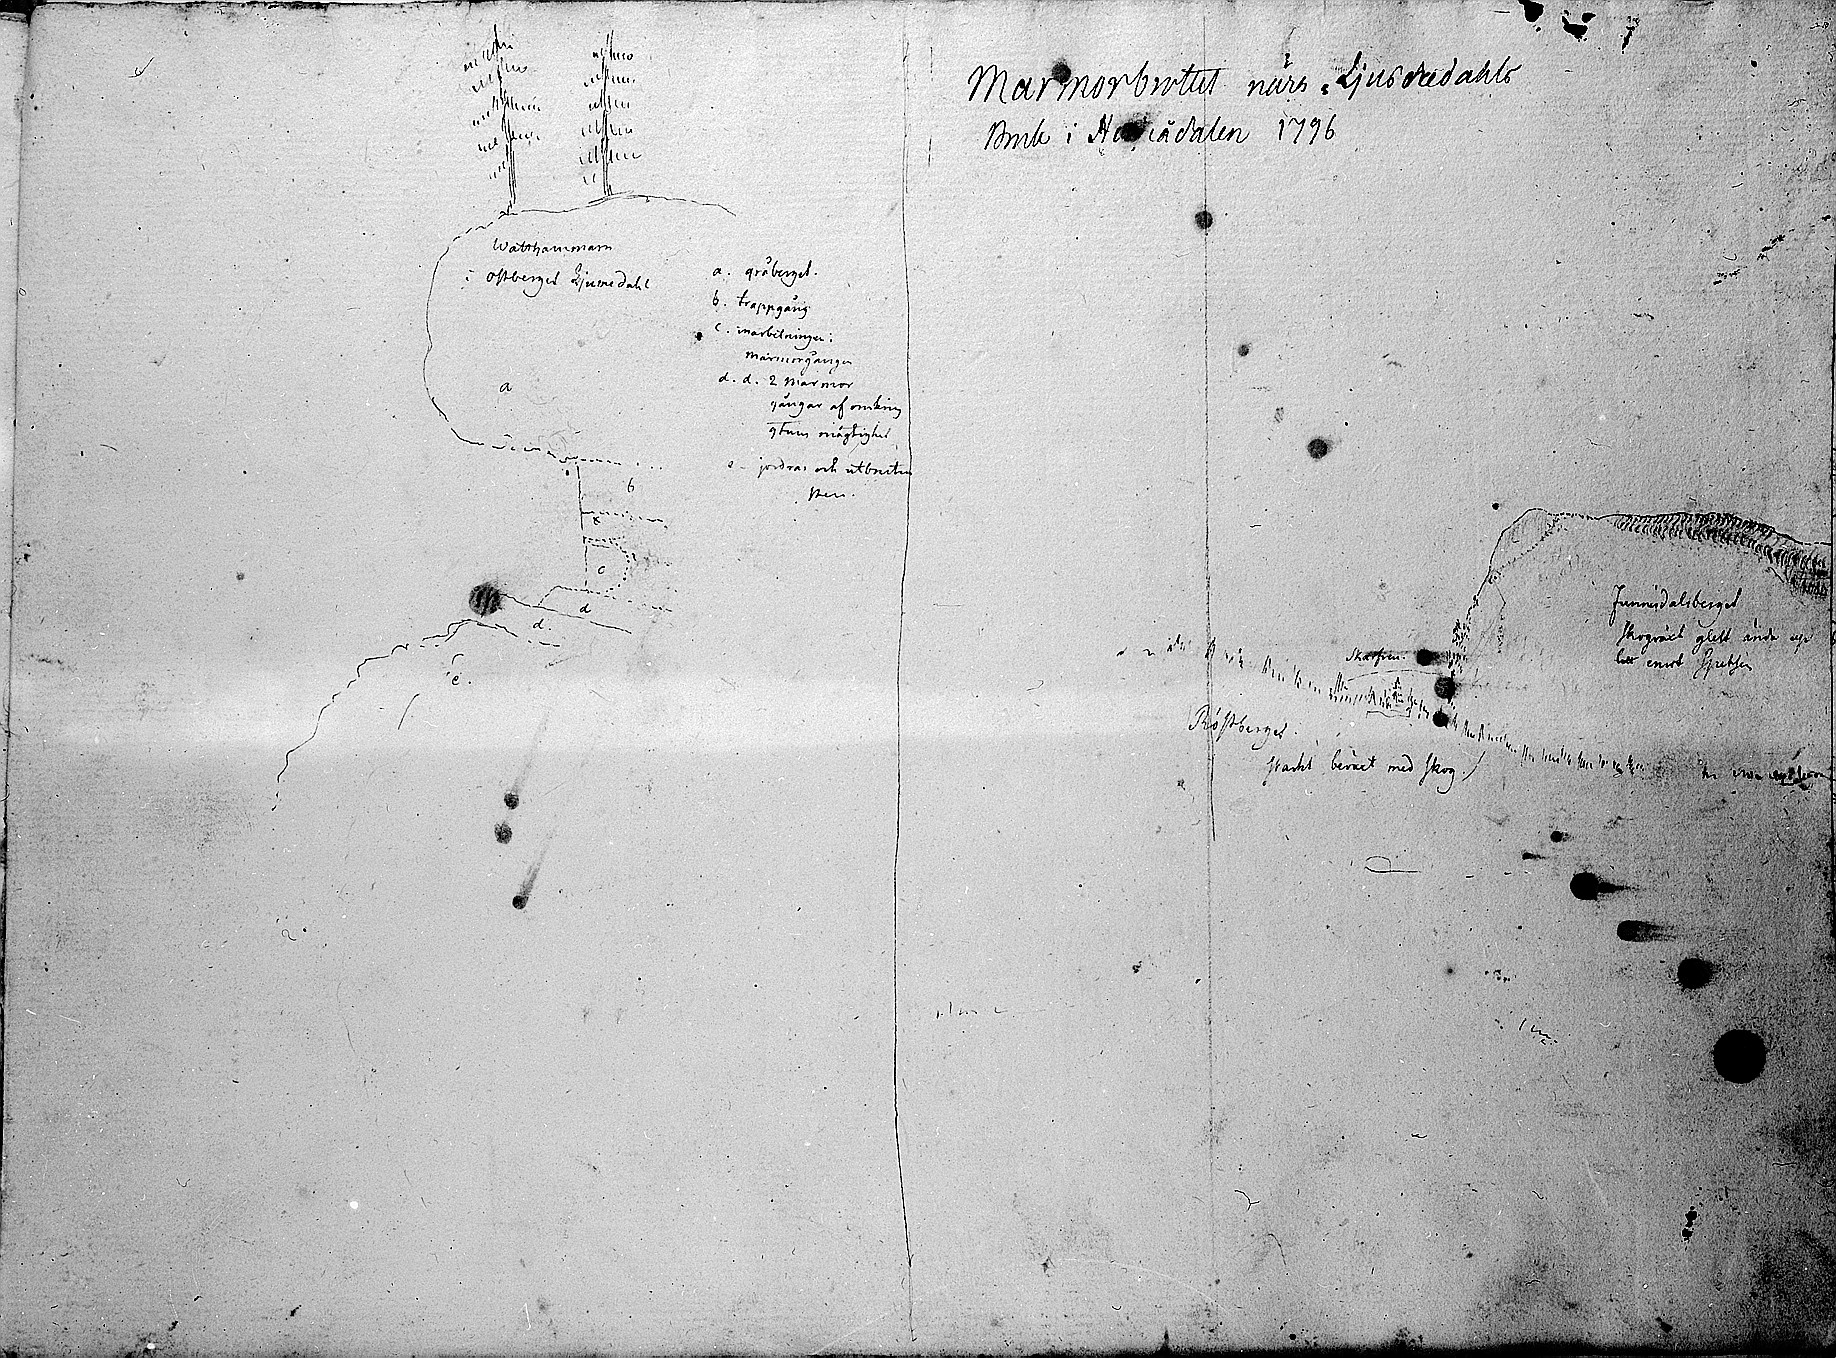 Marmorbrottet nära Ljusnedahls
Bruk i Herjådalen 1796
Watthammarn
i Ostberget Ljusnedahl
a. gråberget.
b. trappgång
c. inarbetningen i
marmorgången
d. d. 2 marmor
gångar af omkring
mägtighet
e. jordras och utbruten
sten.
a
b
x
c
d
d.
e.
Funnesdalsberget
skogväxt glest ända up
Skarfven.
Röstberget.
starkt beväxt med skog